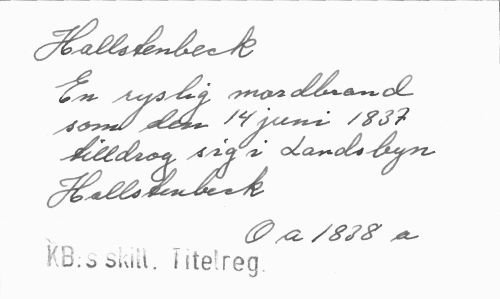 Hallstenbeck
En ryslig mordbrand
som den 14 juni 1837
tilldrog sig i Landsbyn
Hallstenbeck
O a 1838 a
KB:s skill. Titelreg.